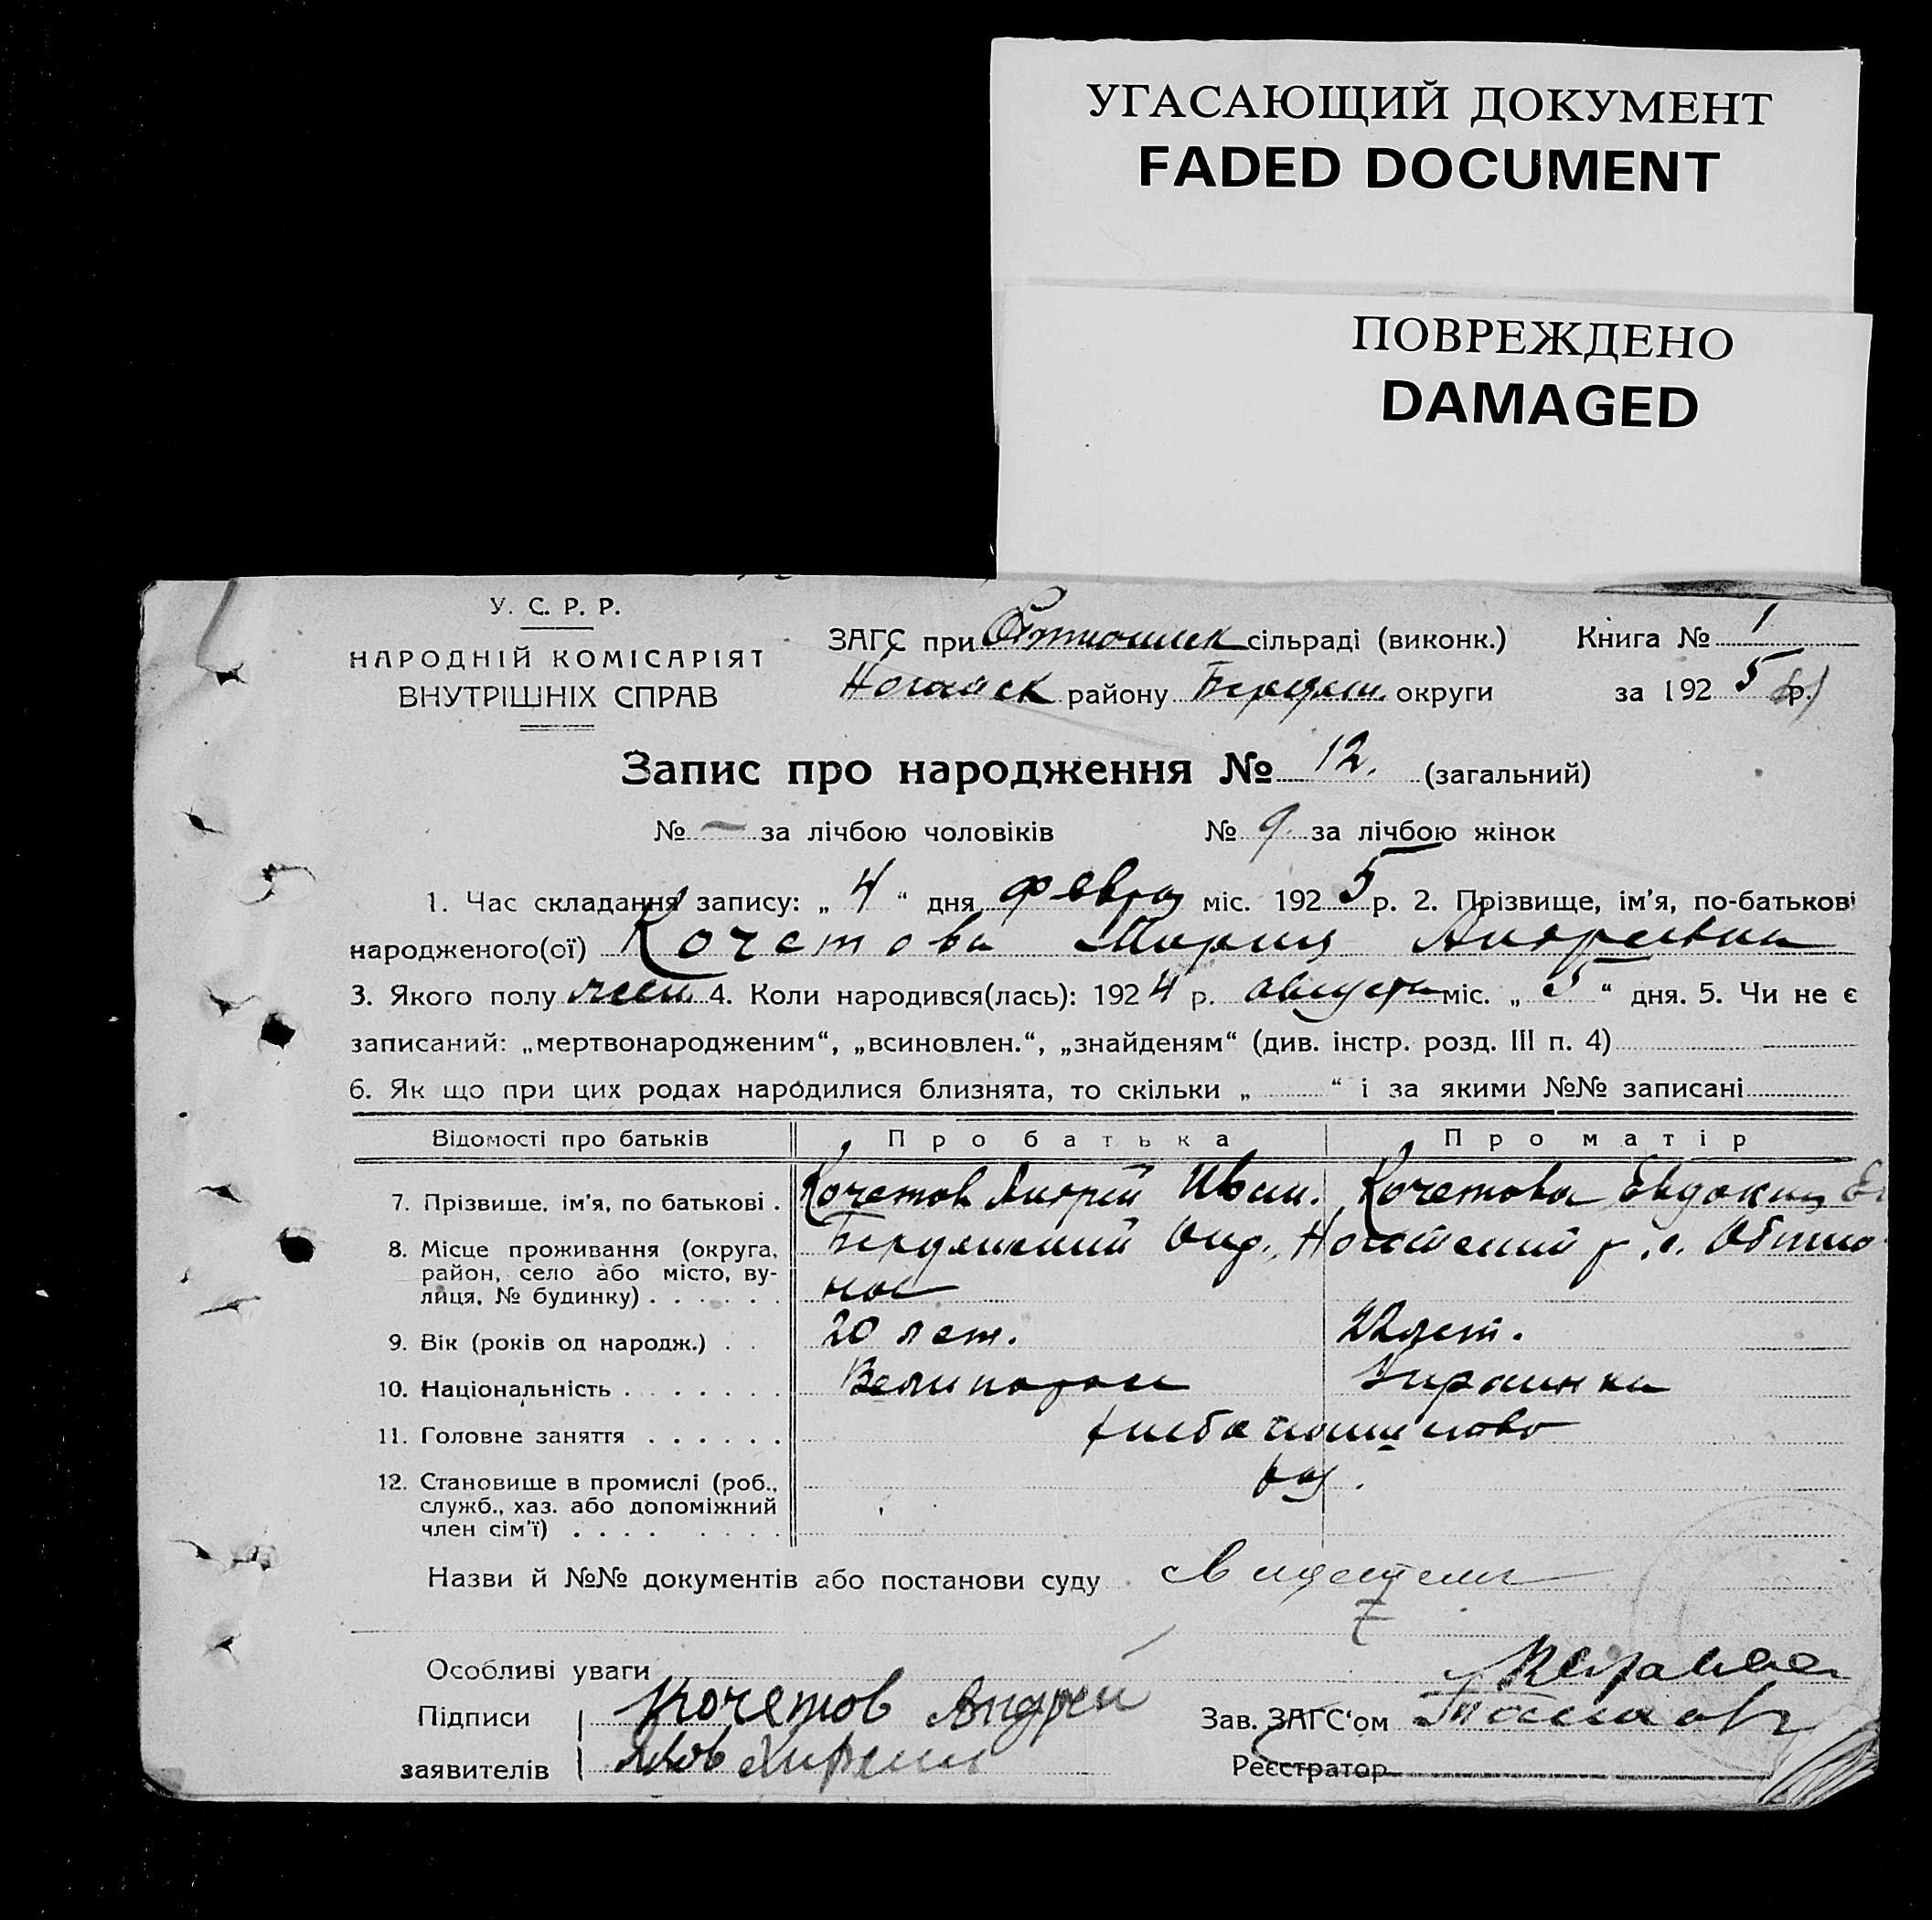 УГАСАЮЩИЙ ДОКУМЕНТ
FADED DOCUMENT
ПОВРЕЖДЕНО
DAMAGED
У. С. Р. Р.
НАРОДНІЙ КОМІСАРІЯТ
ВНУТРІШНІХ СПРАВ
ЗАГС при сільраді (виконк.) Книга № 1
Ногайск району Бердян. округи за 1925 р.
Запис про народження № 12. (загальний)
№ — за лічбою чоловіків № 9 за лічбою жінок
1. Час складання запису: „ 4 “ дня февра міс. 1925 р. 2. Прізвище, ім'я, по-батькові
народженого(ої) Кочетова Мария Андреевна
3. Якого полу жен. 4. Коли народився(лась): 1924 р. августа міс. „ 5 “ дня. 5. Чи не є
записаний: „мертвонародженим“, „всиновлен.“, „знайденям“ (див. інстр. розд. III п. 4)
6. Як що при цих родах народилися близнята, то скільки „ “ і за якими №№ записані
Відомості про батьків Про батька Про матір
7. Прізвище, ім'я, по батькові . Кочетов Андрей Иван. Кочетова Евдокия
8. Місце проживання (округа, Бердянский окр., Ногайский р.,
район, село або місто, ву-
лиця, № будинку) . . . . . .
9. Вік (років од народж.) . . 20 лет. 22 лет.
10. Національність . . . . . . . Великоросс Украинка
11. Головне заняття . . . . . . хлебопашество
12. Становище в промислі (роб.,
служб., хаз. або допоміжний
член сім'ї) . . . . . . . .
Назви й №№ документів або постанови суду свидетели
Особливі уваги
Підписи Кочетов Андрей Зав. ЗАГС‘ом
заявителів Реєстратор